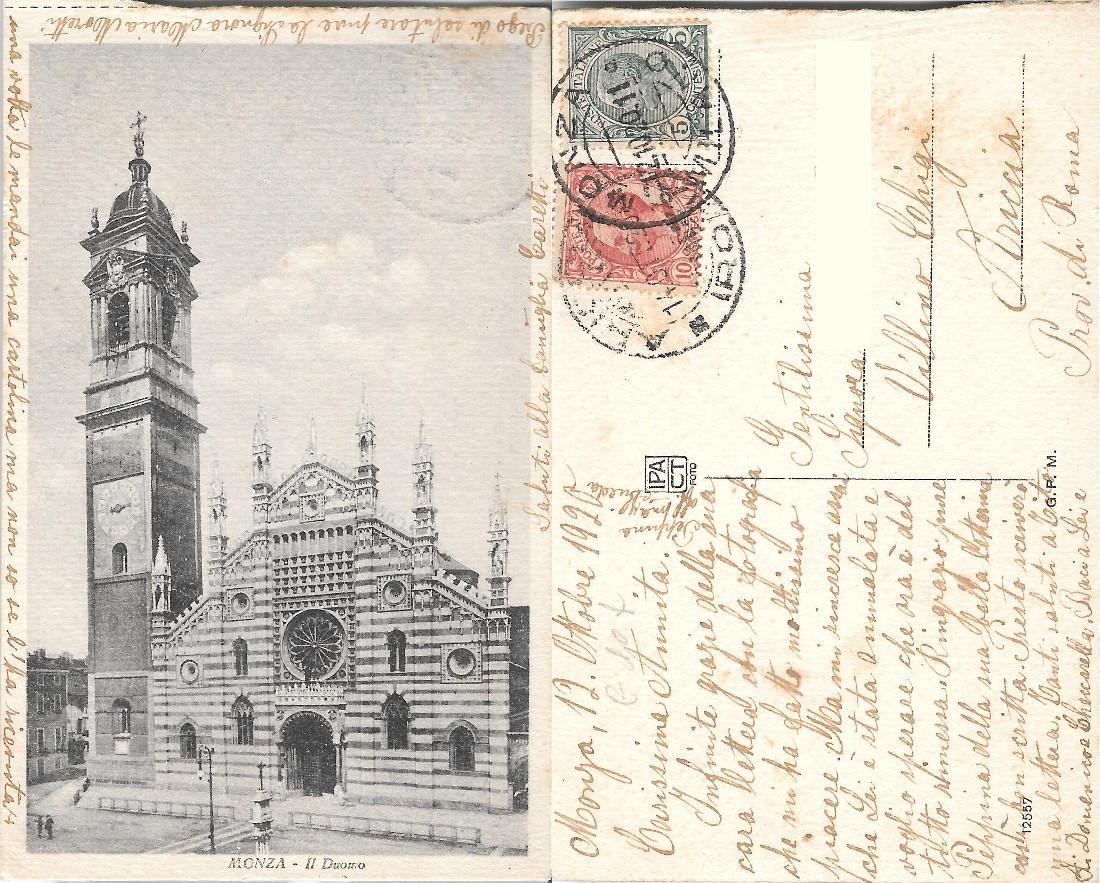 Prego di salutare pure la Signora Maria Moretti
una volta le mandai una cartolina ma non so se l'ha ricevuta
Saluti alla famiglia
MONZA - Il Duomo
MONZA
10.11
5
10
Gentilissima
Signora
Villino Chigi
Ariccia
Prov. di Roma
IPA
CT
FOTO
G. P. M.
12557
Peppina
Monza, 12. Ottobre 192
Carissima Annita.
Infinite grazie della sua
cara lettera con la fotografia
che mi ha fatto moltissimo
piacere. Ma mi rincresce assai
che Lei è stata ammalata e
voglio sperare che sarà del
tutto rimessa. Ringrazio pure
Peppina della sua bella cartolina
così ben scritta. Presto scriverò
una lettera. Tanti saluti a
di Domenico e Baci a Lei e